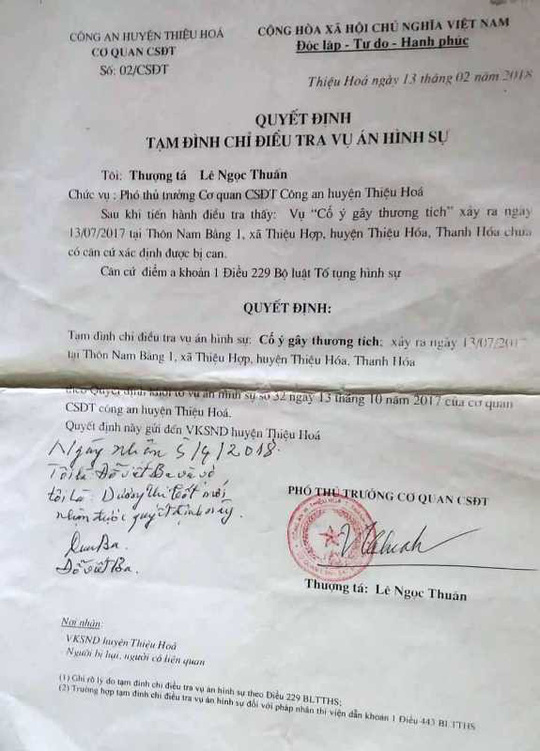 CÔNG AN HUYỆN THIỆU HOÁ
CƠ QUAN CSĐT
Số: 02/CSĐT
CỘNG HÒA XÃ HỘI CHỦ NGHĨA VIỆT NAM
Độc lập - Tự do - Hạnh phúc
Thiệu Hoá ngày 13 tháng 02 năm 2018
QUYẾT ĐỊNH
TẠM ĐÌNH CHỈ ĐIỀU TRA VỤ ÁN HÌNH SỰ
Tôi: Thượng tá Lê Ngọc Thuấn
Chức vụ : Phó thủ trưởng Cơ quan CSĐT Công an huyện Thiệu Hoá
Sau khi tiến hành điều tra thấy: Vụ “Cố ý gây thương tích” xảy ra ngày
13/07/2017 tại Thôn Nam Bằng 1, xã Thiệu Hợp, huyện Thiệu Hóa, Thanh Hóa chưa
có căn cứ xác định được bị can.
Căn cứ điểm a khoản 1 Điều 229 Bộ luật Tố tụng hình sự
QUYẾT ĐỊNH:
Tạm đình chỉ điều tra vụ án hình sự: Cố ý gây thương tích; xảy ra ngày 13/07/2017
tại Thôn Nam Bằng 1, xã Thiệu Hợp, huyện Thiệu Hóa, Thanh Hóa
theo Quyết định khởi tố vụ án hình sự số 32 ngày 13 tháng 10 năm 2017 của cơ quan
CSĐT công an huyện Thiệu Hoá.
Quyết định này gửi đến VKSND huyện Thiệu Hoá
Ngày nhận 5/9/2018.
Tôi là Đỗ Viết Ba và vợ
tôi là Dương Thị mới
nhận được quyết định này.
Ba
Đỗ Viết Ba.
PHÓ THỦ TRƯỞNG CƠ QUAN CSĐT
Thượng tá: Lê Ngọc Thuấn
Nơi nhận:
VKSND huyện Thiệu Hoá
- Người bị hại, người có liên quan
(1) Ghi rõ lý do tạm đình chỉ điều tra vụ án hình sự theo Điều 229 BLTTHS;
(2) Trường hợp tạm đình chỉ điều tra vụ án hình sự đối với pháp nhân thì viện dẫn khoản 1 Điều 443 BLTTHS